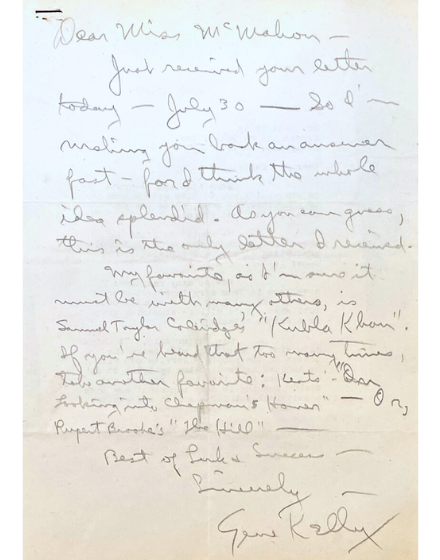 Dear Miss McMahon —
Just received your letter
today — July 30 — So I'm
rushing you back an answer
fast — for I think the whole
idea splendid. As you can guess,
this is the only letter I received.
My favorite, as I'm sure it
must be with many others, is
Samuel Taylor Coleridge's "Kubla Khan".
If you've heard that too many times,
take another favorite: Keats' "On
Looking into Chapman's Homer" — Or,
Rupert Brooke's "The Hill" —
Best of Luck & Success —
Sincerely —
Gene Kelly